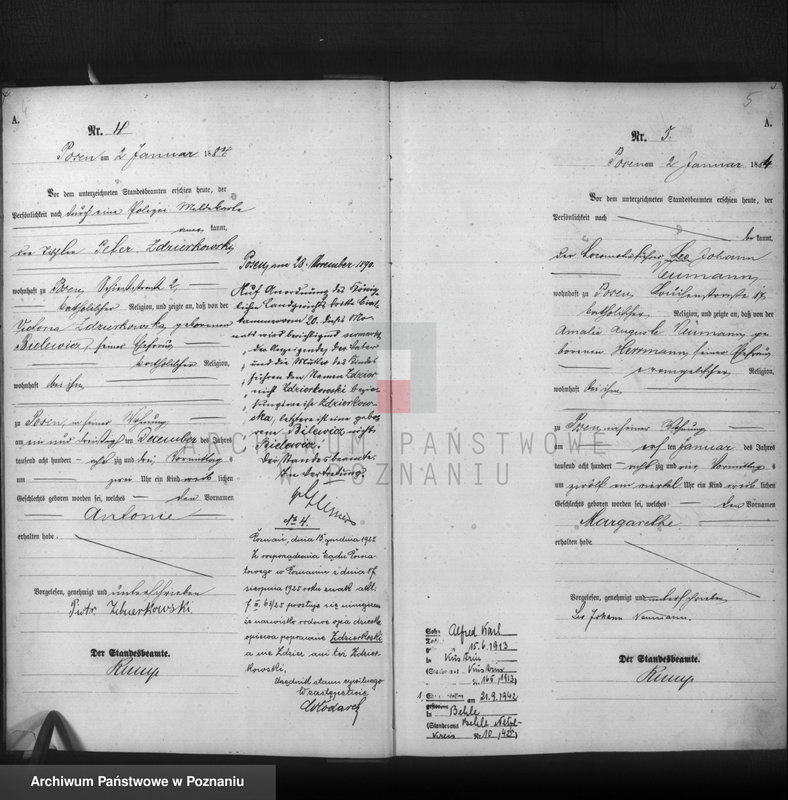 A.
Nr. 4
Posen am 2 Januar 1884
Vor dem unterzeichneten Standesbeamten erschien heute, der
Persönlichkeit nach durch eine Polizei Meldekarte
kannt,
Peter Zdzierkowski,
wohnhaft zu Posen,
katholischer Religion, und zeigte an, daß von der
Victoria Zdzierkowska geborenen
Bielewicz, seiner Ehefrau
katholischer Religion,
wohnhaft bei ihm
zu Posen, in seiner Wohnung
am ein und dreißigsten December des Jahres
tausend acht hundert achtzig und drei Vormittag s
um zwei Uhr ein Kind weiblichen
Geschlechts geboren worden sei, welches den Vornamen
Antonie
erhalten habe.
Vorgelesen, genehmigt und unterschrieben
Piotr
Der Standesbeamte.
Rump
Posen, am 28. November 1890.
Auf Anordnung des König
lichen Landgerichts
vom 20. dieses Mo
nats wird berichtigend vermerkt,
der Anzeigende, der Vater
und die Mutter des Kindes
führen den Namen Zdzier
nicht Zdzierkowski bezie
hungsweise Zdzierkow-
ska, letztere ist eine gebo
rene Bilewicz, nicht
Bielewicz.
Der Standesbeamte
In Vertretung
No 4.
Poznań, dnia 15 grudnia 1925
Z rozporządzenia Sądu Powia
towego w Poznaniu z dnia 17
sierpnia 1925 roku znak akt:
prostuje się niniejszem
że nazwisko rodowe ojca dziecka
opiewa poprawnie Zdzierkoski
a nie Zdzier ani też Zdzier-
kowski.
Urzędnik stanu cywilnego
W zastępstwie
Włodarek
5
A.
Nr. 5.
Posen am 2 Januar 1884
Vor dem unterzeichneten Standesbeamten erschien heute, der
Persönlichkeit nach
kannt,
der Leo Johann
Neumann,
wohnhaft zu Posen,
katholischer Religion, und zeigte an, daß von der
Amalie Auguste Neumann ge
borenen Herrmann, seiner Ehefrau
evangelischer Religion,
wohnhaft bei ihm
zu Posen, in seiner Wohnung
am ersten Januar des Jahres
tausend acht hundert achtzig und vier Vormittag s
um zwölf ein viertel Uhr ein Kind weiblichen
Geschlechts geboren worden sei, welches den Vornamen
Margarethe
erhalten habe.
Vorgelesen, genehmigt und unterschrieben
Leo Johann Neumann.
Der Standesbeamte.
Rump
Alfred Karl
15.6.1913
in Küstrin
Küstrin
Nr. 165/1913)
am 21.9.1942
in Behle
(Standesamt Behle
Kreis Nr. 10/42)
ARCHIWUM PAŃSTWOWE
W POZNANIU
Archiwum Państwowe w Poznaniu